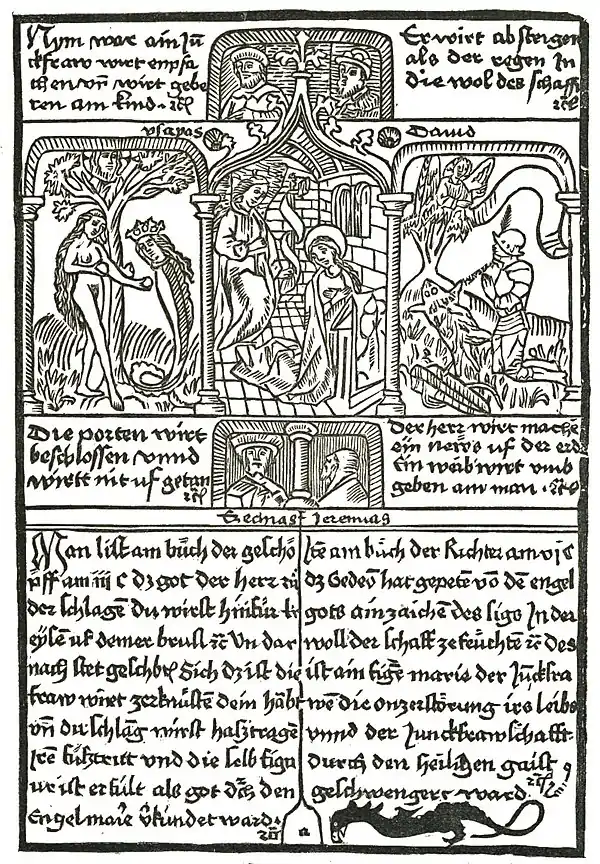 Nym war ain Jū
ckfraw wirt enpfa
chen vn̄ wirt gebe
ren am kind · rc̄
Er wirt absteigen
als der regen In
die wol des schaffs
rc̄
ysayas
Dauid
Die porten wirt
beschlossen vnnd
wirtt nit uf getan
rc̄
Der herr wirt machē
eyn news uf der erd
Ein wāb wirt vmb
geben am man · rc̄
Jeremias
Man list am bůch der geschö
pff am iii c dz got der herr zů
der schlagen du wirst hinfür kr
eysen uf deiner brust rc̄ Vn dar
nach stet geschbē Sich dz ist die
fraw wirt zerknüsten dein habt
vn̄ du schlāg wirst haſztragē
Irē fůſztritt vnd die selb figu
ur ist erfült als got dēch den
Engel mariē v̄kündet ward ·
rc̄
Itē am bůch der Richter am vj c
dz Gedeō hat gepetē vō dē engel
gots ain zaichen des sigs In der
woll der schaff ze feüchte rc̄ des
ist ain figē marie der Jūckfra
wē die on zerstörung irs leibs
vnnd der Junckfrawschafft
durch den heiligen gaist
geschwengert ward ·
rc̄
a